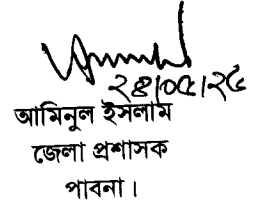 ২৪/০৫/২৫
আমিনুল ইসলাম
জেলা প্রশাসক
পাবনা।